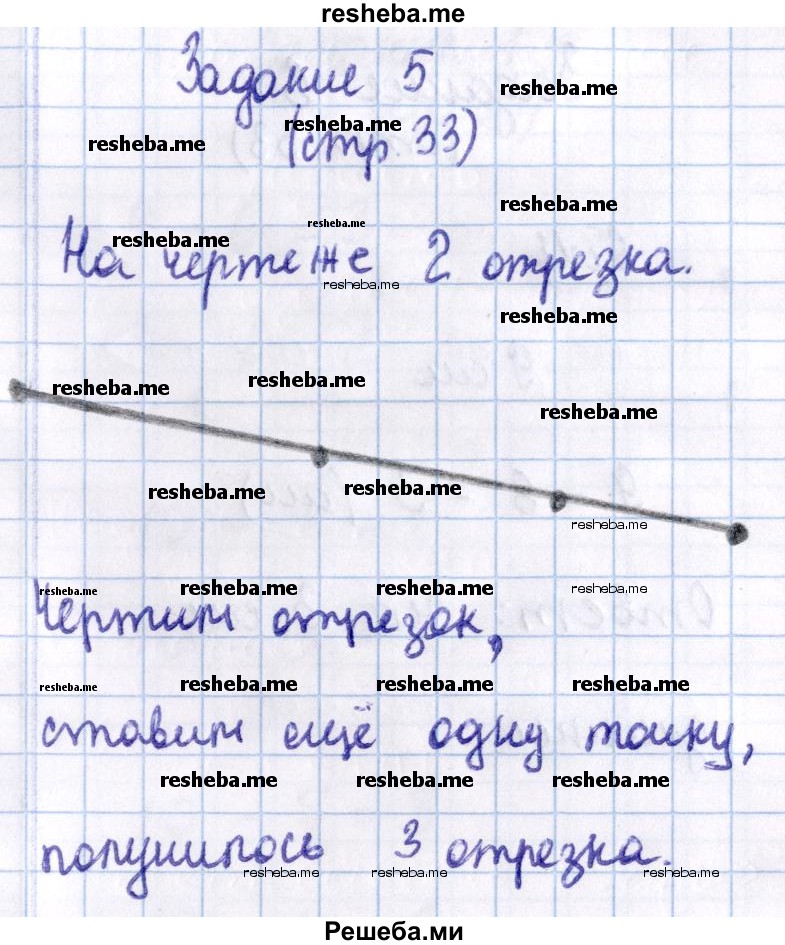 resheba.me
Задание 5
resheba.me
(стр 33)
resheba.me
resheba.me
resheba.me
resheba.me
resheba.me
На чертеже 2 отрезка.
resheba.me
resheba.me
resheba.me
resheba.me
resheba.me
resheba.me
resheba.me
resheba.me
resheba.me
resheba.me
resheba.me
resheba.me
Чертим отрезок,
resheba.me
resheba.me
resheba.me
resheba.me
ставим ещё одну точку,
resheba.me
resheba.me
resheba.me
получилось 3 отрезка.
resheba.me
resheba.me
resheba.me
Решеба.ми